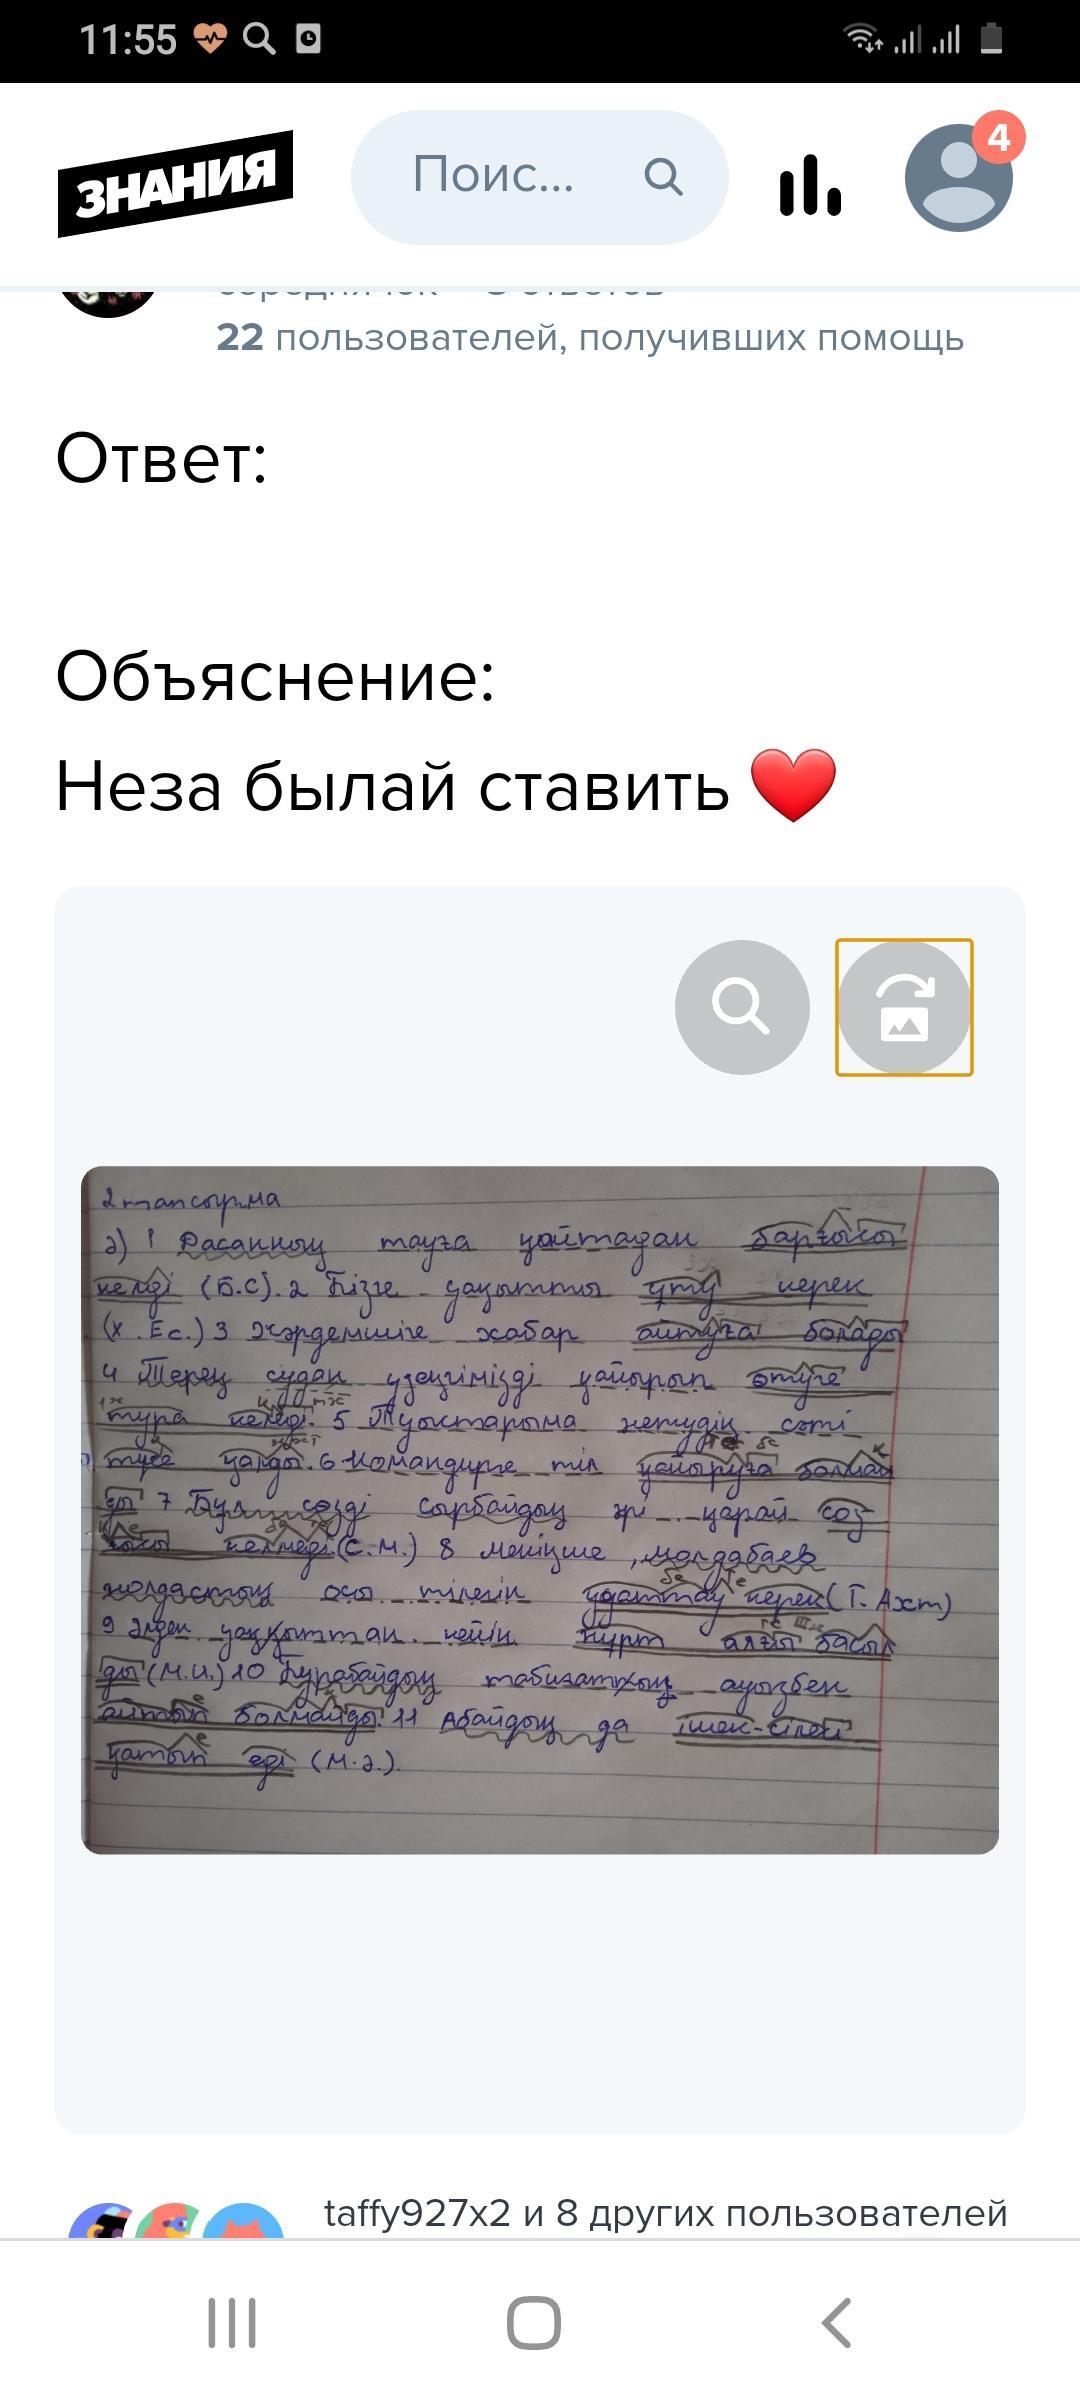 11:55
ЗНАНИЯ
Поис...
4
22 пользователей, получивших помощь
Ответ:
Объяснение:
Неза былай ставить ❤️
2 тапсырма
ә) 1 Дасанның тауға қайтадан барғысы
келді (Б.С). 2 Бізге уақытты ұту керек
(Х. Ес.) 3 Жәрдемшіге хабар айтуға болады
4 Терең судан үзеңгімізді қайырып өтуге
тура келді. 5 Туыстарыма кетудің сәті
түсе қалды. 6 Командирге тіл қайыруға болмай
ды 7 Бұл сөзді сырбайдың әрі қарай соз-
ғысы келмеді. (С.М.) 8 меніңше, молдабаев
жолдастың осы тілегін құаттау керек (Ғ. Ахт)
9 Әлден уаққыттан кейін нұрт алғы басыл
ды (М.И.) 10 Бурабайдың табиғатың ауызбен
айтып болмайды. 11 Абайдың да ішек-сілесі
қатып еді (М.Ә.).
taffy927x2 и 8 других пользователей